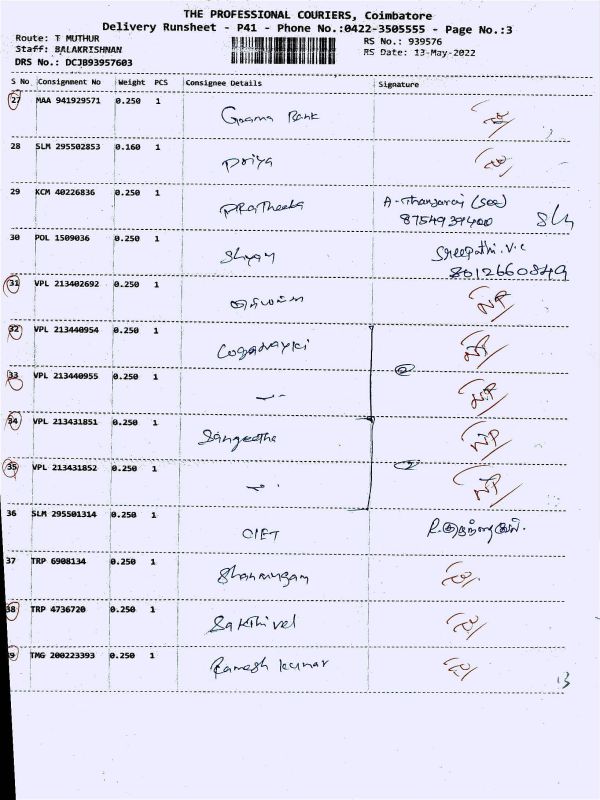 THE PROFESSIONAL COURIERS, Coimbatore
Delivery Runsheet - P41 - Phone No.:0422-3505555 - Page No.:3
Route: T MUTHUR RS No.: 939576
Staff: BALAKRISHNAN RS Date: 13-May-2022
DRS No.: DCJB93957603
S No Consignment No Weight PCS Consignee Details Signature
27 MAA 941929571 0.250 1 Bank
28 SLM 295502853 0.160 1 Priya
29 KCM 40226836 0.250 1 PRatheeba A-Thangaraj (Sec)
8754939400
30 POL 1509036 0.250 1 Shyam Sreepathi.v.c
8012660849
31 VPL 213402692 0.250 1 NP
32 VPL 213440954 0.250 1 Loganayki NP
33 VPL 213440955 0.250 1 NP
34 VPL 213431851 0.250 1 Sangeetha NP
35 VPL 213431852 0.250 1 NP
36 SLM 295501314 0.250 1 CIET
37 TRP 6908134 0.250 1 Shanmugam
38 TRP 4736720 0.250 1 Sakthivel
9 TMG 200223393 0.250 1 Ramesh kumar
13